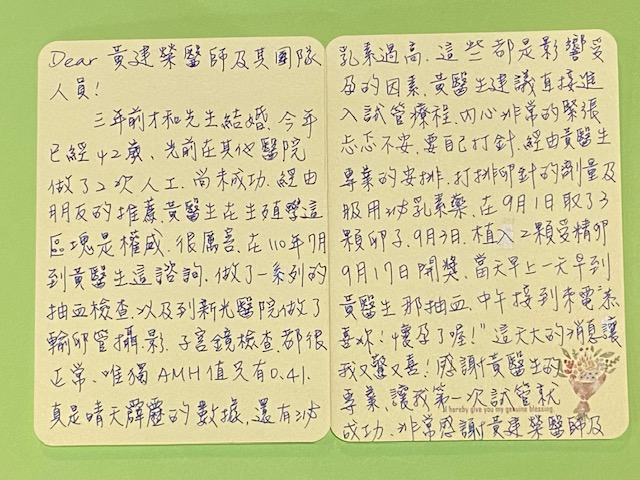 Dear 黃建榮醫師及其團隊
人員!
三年前才和先生結婚、今年
已經42歲、先前在其他醫院
做了2次人工、尚未成功、經由
朋友的推薦、黃醫生在生殖學這
區塊是權威、很厲害、在110年7月
到黃醫生這諮詢、做了一系列的
抽血檢查、以及到新光醫院做了
輸卵管攝影、子宮鏡檢查、都很
正常、唯獨AMH值只有0.41、
真是晴天霹靂的數據、還有泌
乳素過高、這些都是影響受
孕的因素、黃醫生建議直接進
入試管療程、內心非常的緊張
忐忑不安、要自己打針、經由黃醫生
專業的安排、打排卵針的劑量及
服用泌乳素藥、在9月1日取了3
顆卵子、9月3日、植入2顆受精卵
9月17日開獎、當天早上一大早到
黃醫生那抽血、中午接到來電"恭
喜妳!懷孕了喔!"這天大的消息讓
我又驚又喜!感謝黃醫生的
專業、讓我第一次試管就
I hereby give you my genuine blessing.
成功、非常感謝黃建榮醫師及